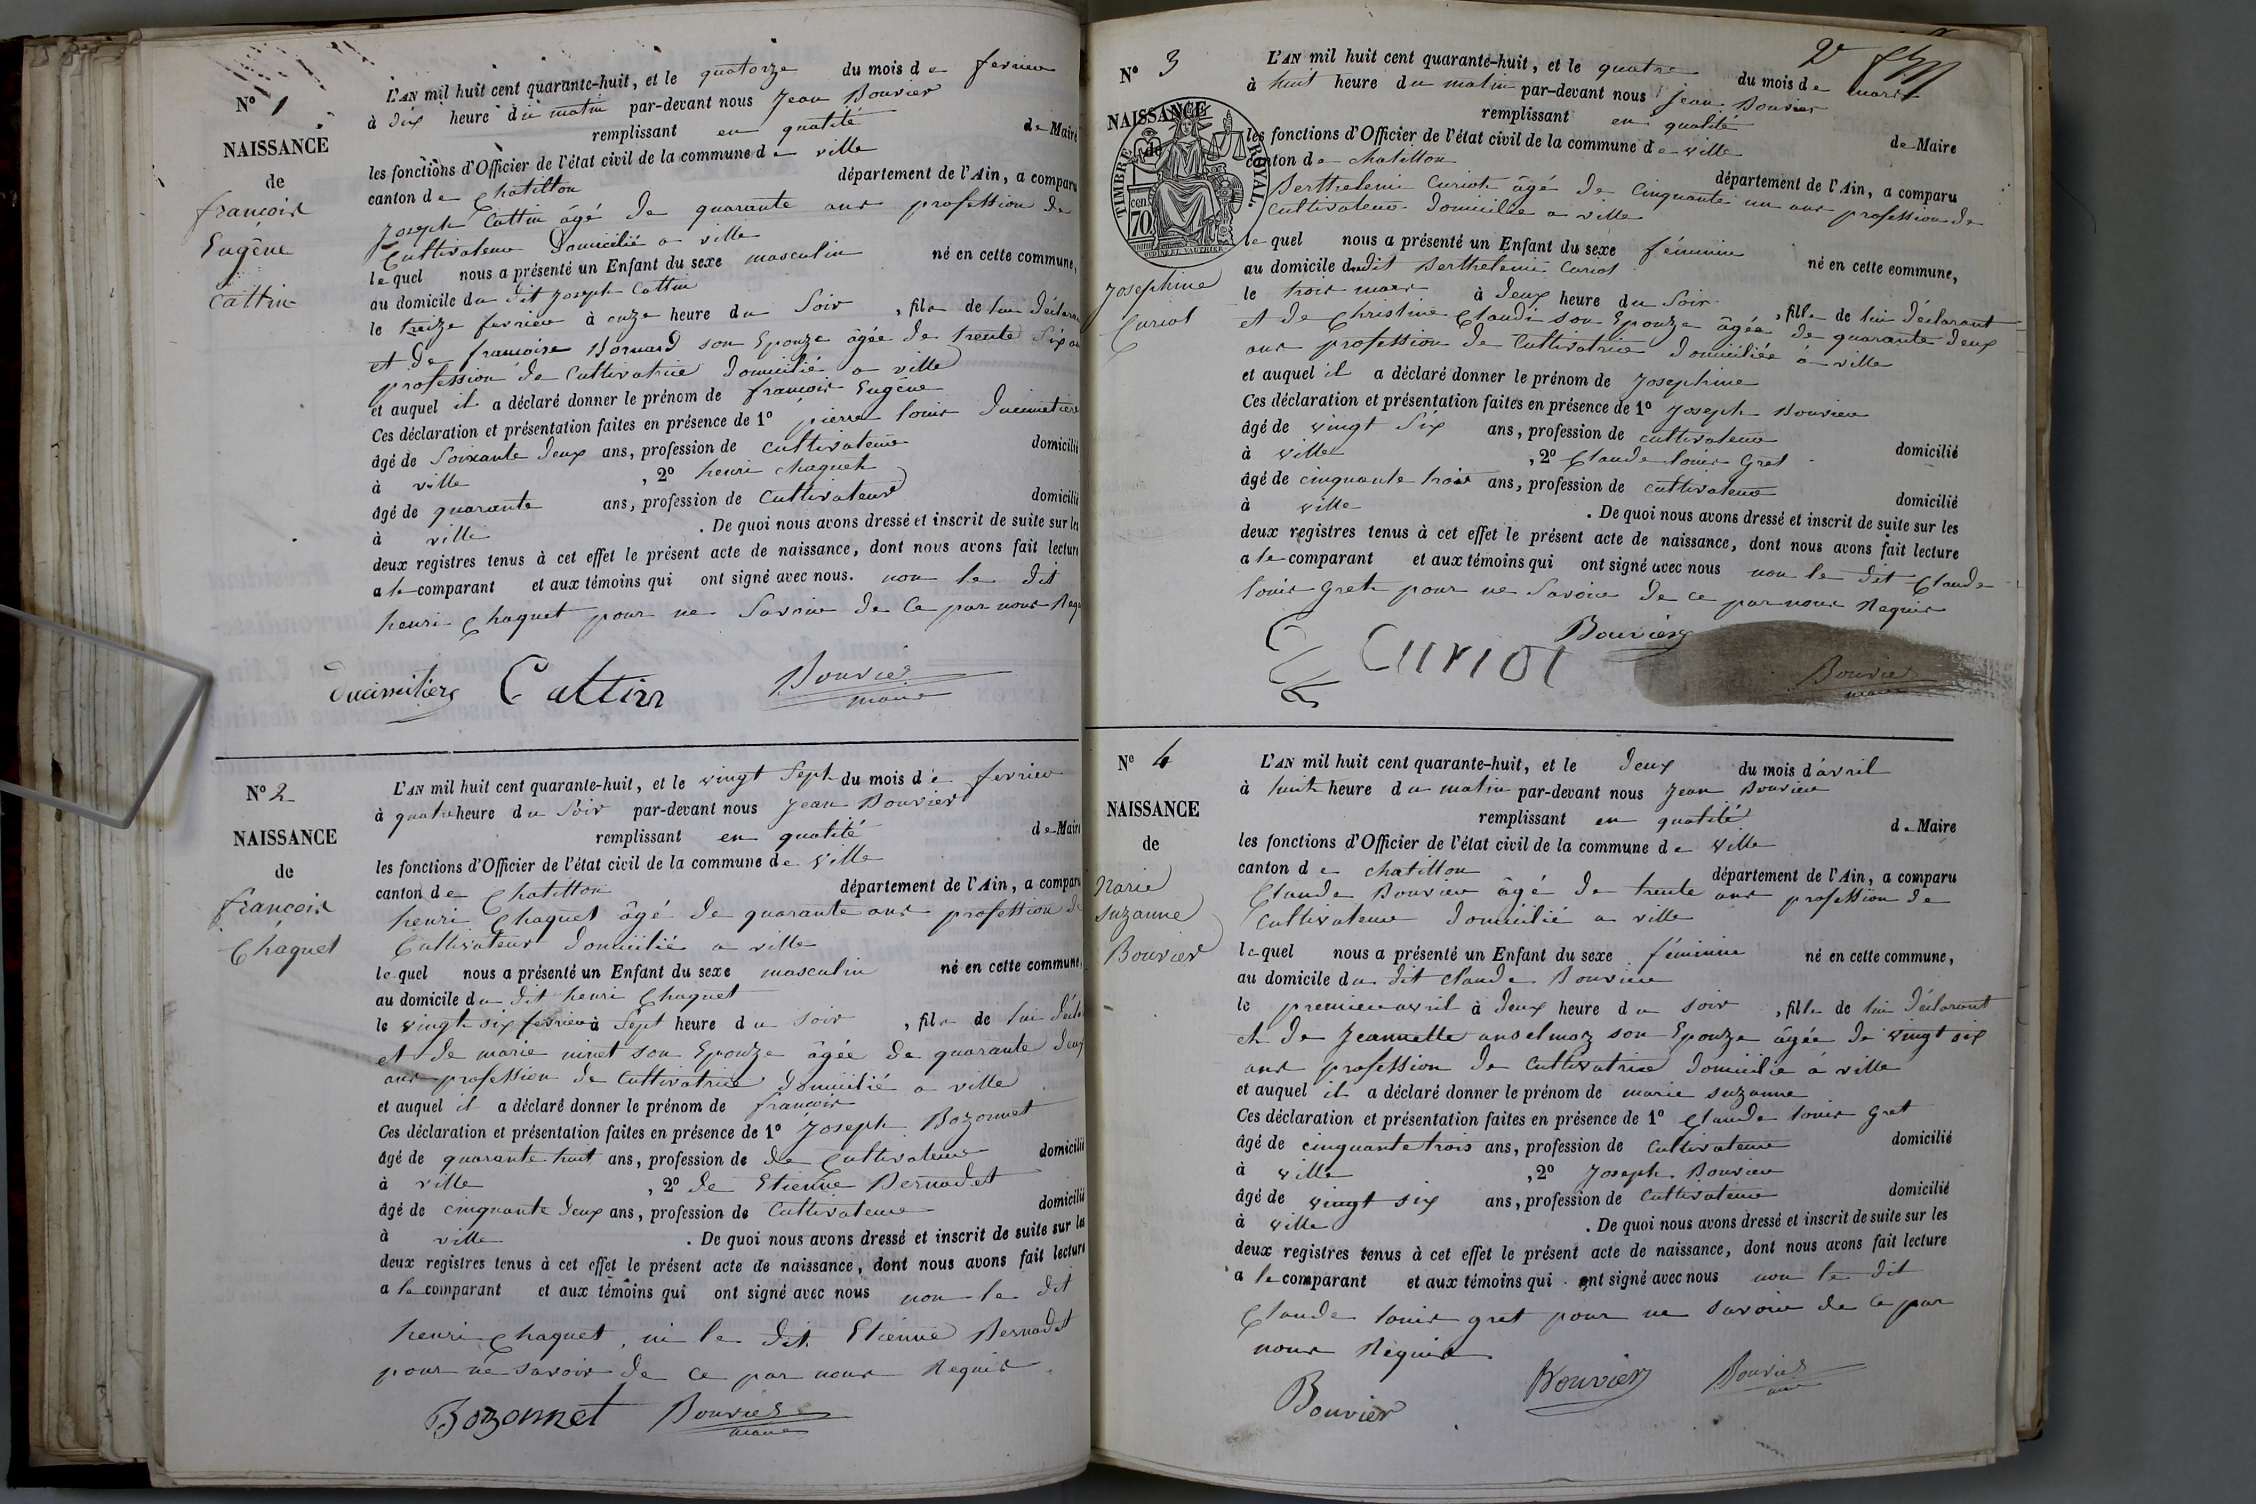 N° 1
NAISSANCE
de
françois
Eugêne
Cattin
L'AN mil huit cent quarante-huit, et le quatorze du mois de fevrier
à dix heure du matin par-devant nous Jean Bouvier
remplissant en qualité de Maire
les fonctions d'Officier de l'état civil de la commune de ville
canton de Chatillon département de l'Ain, a comparu
Joseph Cattin âgé de quarante ans profession de
Cultivateur Domicilié a ville
lequel nous a présenté un Enfant du sexe masculin né en cette commune,
au domicile du dit Joseph Cattin
le treize fevrier à onze heure du Soir, fils de lui déclarant
et de francoise Bornard son Epouze âgée de trente Six ans
profession de Cultivatrice domicilié a ville
et auquel il a déclaré donner le prénom de françois Eugêne
Ces déclaration et présentation faites en présence de 1° pierre louis Ducimetiere
âgé de Soixante deux ans, profession de cultivateur domicilié
à ville, 2° henri chaquet
âgé de quarante ans, profession de Cultivateur domicilié
à ville. De quoi nous avons dressé et inscrit de suite sur les
deux registres tenus à cet effet le présent acte de naissance, dont nous avons fait lecture
a le comparant et aux témoins qui ont signé avec nous. non le dit
henri Chaquet pour ne Savoir de Ce par nous Requis
Ducimitiere Cattin Bouvier
maire
N° 2
NAISSANCE
de
françois
Chaquet
L'AN mil huit cent quarante-huit, et le vingt Sept du mois de fevrier
à quatre heure du Soir par-devant nous Jean Bouvier
remplissant en qualité de Maire
les fonctions d'Officier de l'état civil de la commune de ville
canton de Chatillon département de l'Ain, a comparu
henri Chaquet âgé de quarante ans profession de
Cultivateur domicilié a ville
lequel nous a présenté un Enfant du sexe masculin né en cette commune,
au domicile du dit henri Chaquet
le vingt six fevrier à Sept heure du soir, fils de lui décla
et de marie ninet son Epouze âgée de quarante deux
ans profession de Cultivatrice domicilié a ville
et auquel il a déclaré donner le prénom de françois
Ces déclaration et présentation faites en présence de 1° Joseph Bozonnet
âgé de quarante huit ans, profession de de Cultivateur domicilié
à ville, 2° de Etienne Bernadet
âgé de cinquante deux ans, profession de Cultivateur domicilié
à ville. De quoi nous avons dressé et inscrit de suite sur les
deux registres tenus à cet effet le présent acte de naissance, dont nous avons fait lecture
a le comparant et aux témoins qui ont signé avec nous non le dit
henri Chaquet ni le dit Etienne Bernadet
pour ne savoir de ce par nous Requis
Bozonnet Bouvier
maire
2e
N° 3
NAISSANCE
de
TIMBRE ROYAL.
70 cen
Josephine
Curiot
L'AN mil huit cent quarante-huit, et le quatre du mois de mars
à huit heure du matin par-devant nous Jean Bouvier
remplissant en qualité de Maire
les fonctions d'Officier de l'état civil de la commune de ville
canton de chatillon département de l'Ain, a comparu
Berthelemi Curiot âgé de Cinquante un ans profession de
Cultivateur domicilié a ville
lequel nous a présenté un Enfant du sexe féminin né en cette commune,
au domicile du dit Berthelemi Curiot
le trois mars à deux heure du Soir, fille de lui déclarant
et de Christine Claudi son Epouze âgée de quarante deux
ans profession de Cultivatrice domiciliée a ville
et auquel il a déclaré donner le prénom de Josephine
Ces déclaration et présentation faites en présence de 1° Joseph Bouvier
âgé de vingt Six ans, profession de cultivateur domicilié
à ville, 2° Claude louis Gret
âgé de cinquante trois ans, profession de cultivateur domicilié
à ville. De quoi nous avons dressé et inscrit de suite sur les
deux registres tenus à cet effet le présent acte de naissance, dont nous avons fait lecture
a le comparant et aux témoins qui ont signé avec nous non le dit Claude
louis gret pour ne Savoir de ce par nous Requis
Curiot Bouvier Bouvier
maire
N° 4
NAISSANCE
de
Marie
Suzanne
Bouvier
L'AN mil huit cent quarante-huit, et le deux du mois d'avril
à huit heure du matin par-devant nous Jean Bouvier
remplissant en qualité de Maire
les fonctions d'Officier de l'état civil de la commune de ville
canton de chatillon département de l'Ain, a comparu
Claude Bouvier âgé de trente ans profession de
Cultivateur domicilié a ville
lequel nous a présenté un Enfant du sexe féminin né en cette commune,
au domicile du dit Claude Bouvier
le premier avril à deux heure du soir, fille de lui déclarant
et de Jeannette anselmoz son Epouze âgée de vingt six
ans profession de Cultivatrice domicilié a ville
et auquel il a déclaré donner le prénom de marie suzanne
Ces déclaration et présentation faites en présence de 1° Claude louis Gret
âgé de cinquante trois ans, profession de Cultivateur domicilié
à ville, 2° Joseph Bouvier
âgé de vingt six ans, profession de Cultivateur domicilié
à ville. De quoi nous avons dressé et inscrit de suite sur les
deux registres tenus à cet effet le présent acte de naissance, dont nous avons fait lecture
a le comparant et aux témoins qui ont signé avec nous non le dit
Claude louis gret pour ne savoir de Ce par
nous Requis
Bouvier Bouvier Bouvier